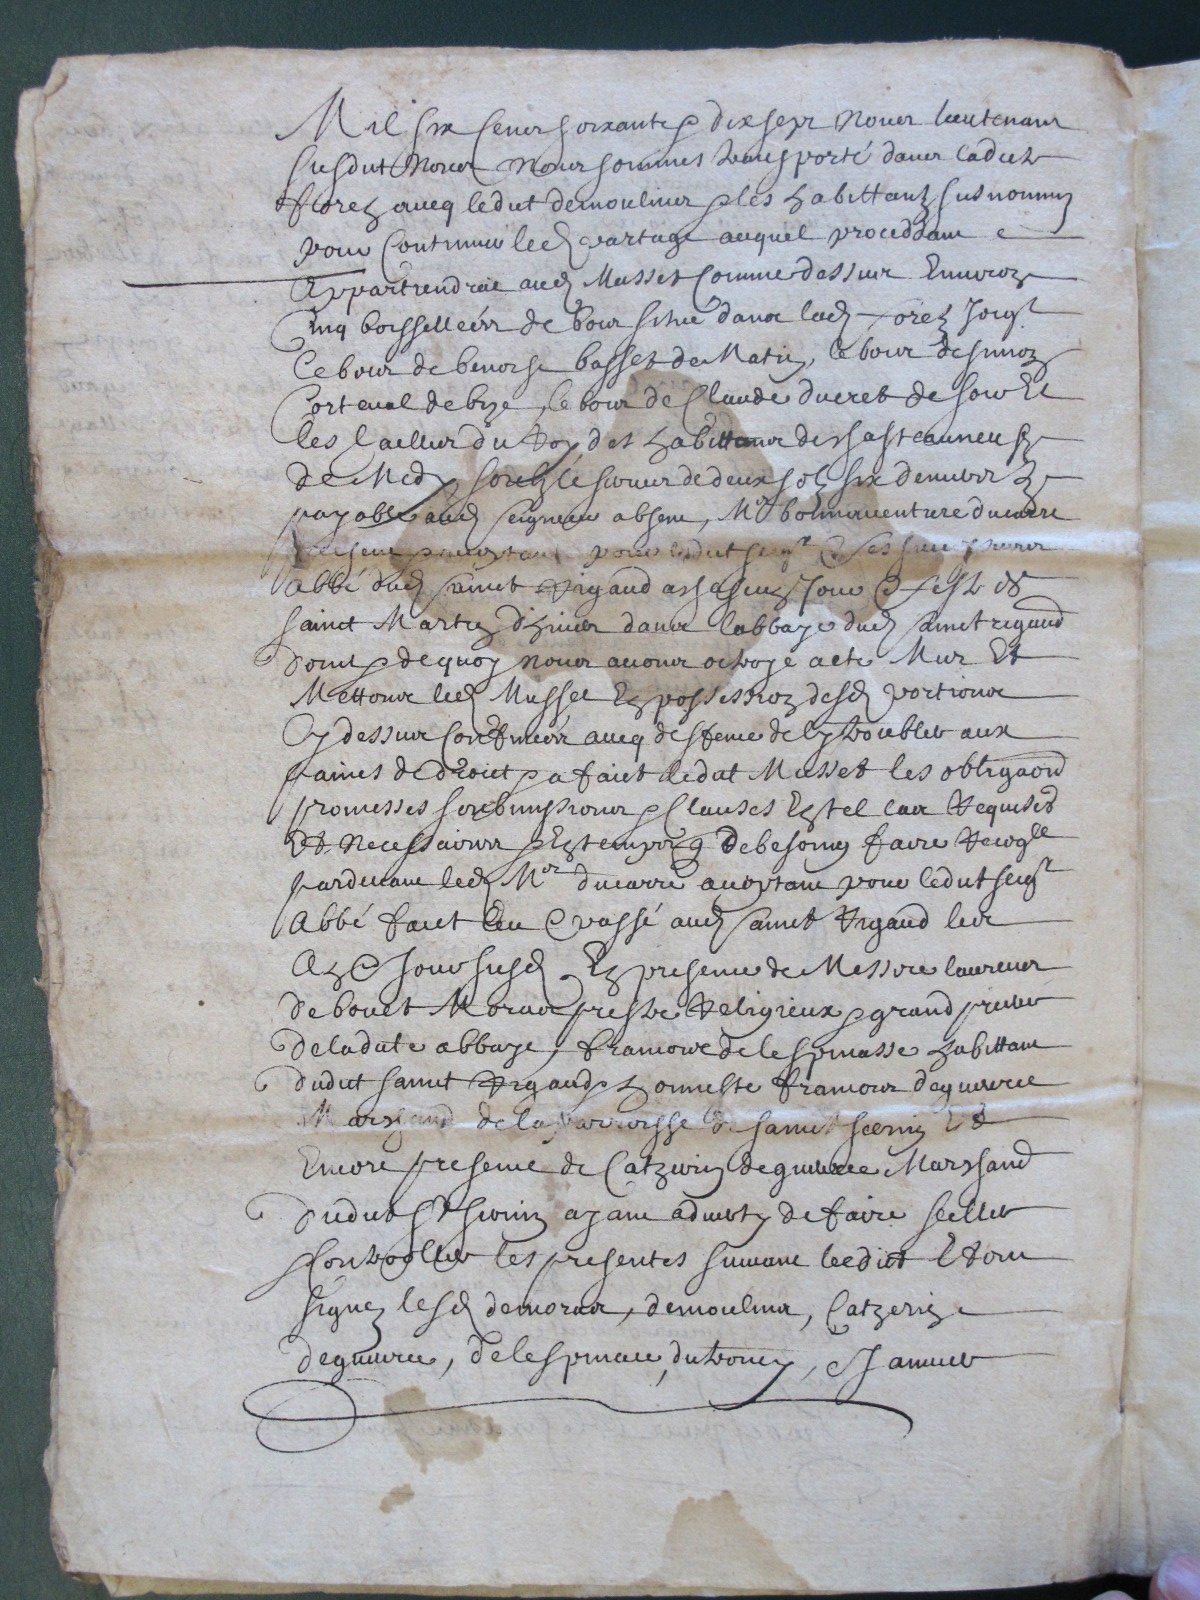 Mil six cens soixante & dix sept nous lieutenant
susdict nous nous sommes transporté dans ladicte
forez avecq ledict demoulins & les habittantz susnommez
pour continuer led partage auquel proceddant
Appartiendrat aud Musset comme dessus Environ
cinq boissellées de bois situé dans lad forez Joigt
Le bois de benoist basset de Matin, le bois de simon
Corteval de bize, le bois de Claude ducret de soir Et
les du Roy des habittans de chasteauneuf
de Midy soubz le servis de deux solz six deniers
payable aud seigneur absent, Mre bonnaventure ducarre
present pour ledict seigr & ses successeurs
Abbé dud sainct Rigaud a chascung Jour & feste de
sainct Martin d'hiver dans labbaye dud sainct rigaud
Dont & dequoy nous avons octroyé acte Mis Et
Mettons led Musset En possession desd portions
Cy dessus confinées avecq deffence de ly troubler aux
paines de droict & a faict ledict Musset les obligaons
promesses soubmissions & clauses En tel cas Requises
Et necessaires & En temps de besoing faire Recogle
pardevant led Mre ducarre acceptant pour ledict seigr
Abbé faict leu & passé aud sainct Rigaud les
An & Jour susd En presence de Messire laurens
debouet Moras prestre Religieux & grand prieur
De ladicte abbaye, francois de lespinasse habittant
dudict sainct Rigaud & honneste francois deguerre
Marchand de la parroisse de sainct Et
Encore presence de Catherin deguerre Marchand
Dudict St ayant adverty de faire seeller
Controller les presentes suivant leedict Et ont
signez lesd demoras, demoulins, Catherin
deguerre, delespinace, dutroncy, & Janvier